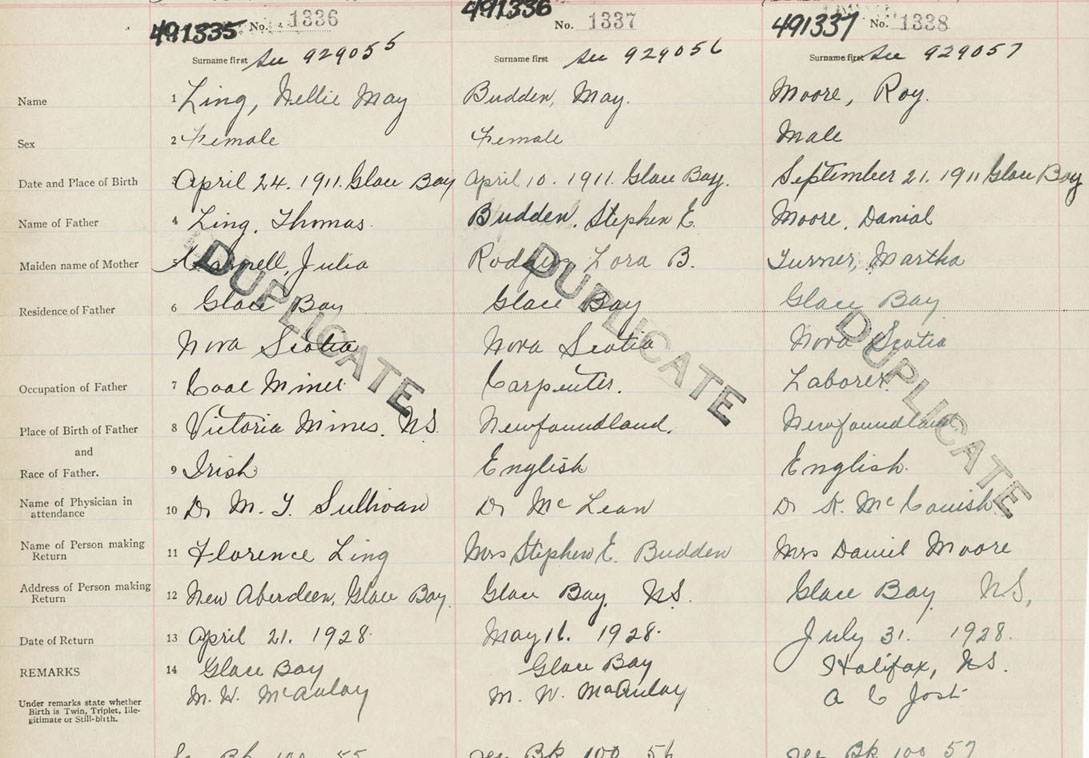 491335 No. 1336
491336 No. 1337
491337 No. 1338
Surname first See 929055
Surname first See 929056
Surname first See 929057
Name 1 Ling, Nellie May Budden, May. Moore, Roy.
Sex 2 Female Female Male
Date and Place of Birth 3 April 24. 1911. Glace Bay April 10. 1911. Glace Bay. September 21. 1911 Glace Bay
Name of Father 4 Ling, Thomas. Budden, Stephen E. Moore, Danial
Maiden name of Mother 5 Julia Lora B. Turner, Martha
DUPLICATE DUPLICATE DUPLICATE
Residence of Father 6 Glace Bay Glace Bay Glace Bay
Nova Scotia Nova Scotia Nova Scotia
Occupation of Father 7 Coal Miner Carpenter. Laborer.
Place of Birth of Father 8 Victoria Mines. N.S. Newfoundland. Newfoundland
and
Race of Father. 9 Irish English English.
Name of Physician in
attendance 10 Dr M. T. Sullivan Dr McLean Dr
Name of Person making
Return 11 Florence Ling Mrs Stephen E. Budden Mrs Daniel Moore
Address of Person making
Return 12 New Aberdeen, Glace Bay. Glace Bay. N.S. Glace Bay N.S,
Date of Return 13 April 21. 1928. May 16. 1928. July 31. 1928.
REMARKS 14 Glace Bay Glace Bay Halifax, N.S.
M. W. McAulay M. W. McAulay A C Jost
Under remarks state whether
Birth is Twin, Triplet, Ille-
gitimate or Still-birth.
See Bk 100 55 See Bk 100 56 See Bk 100 57